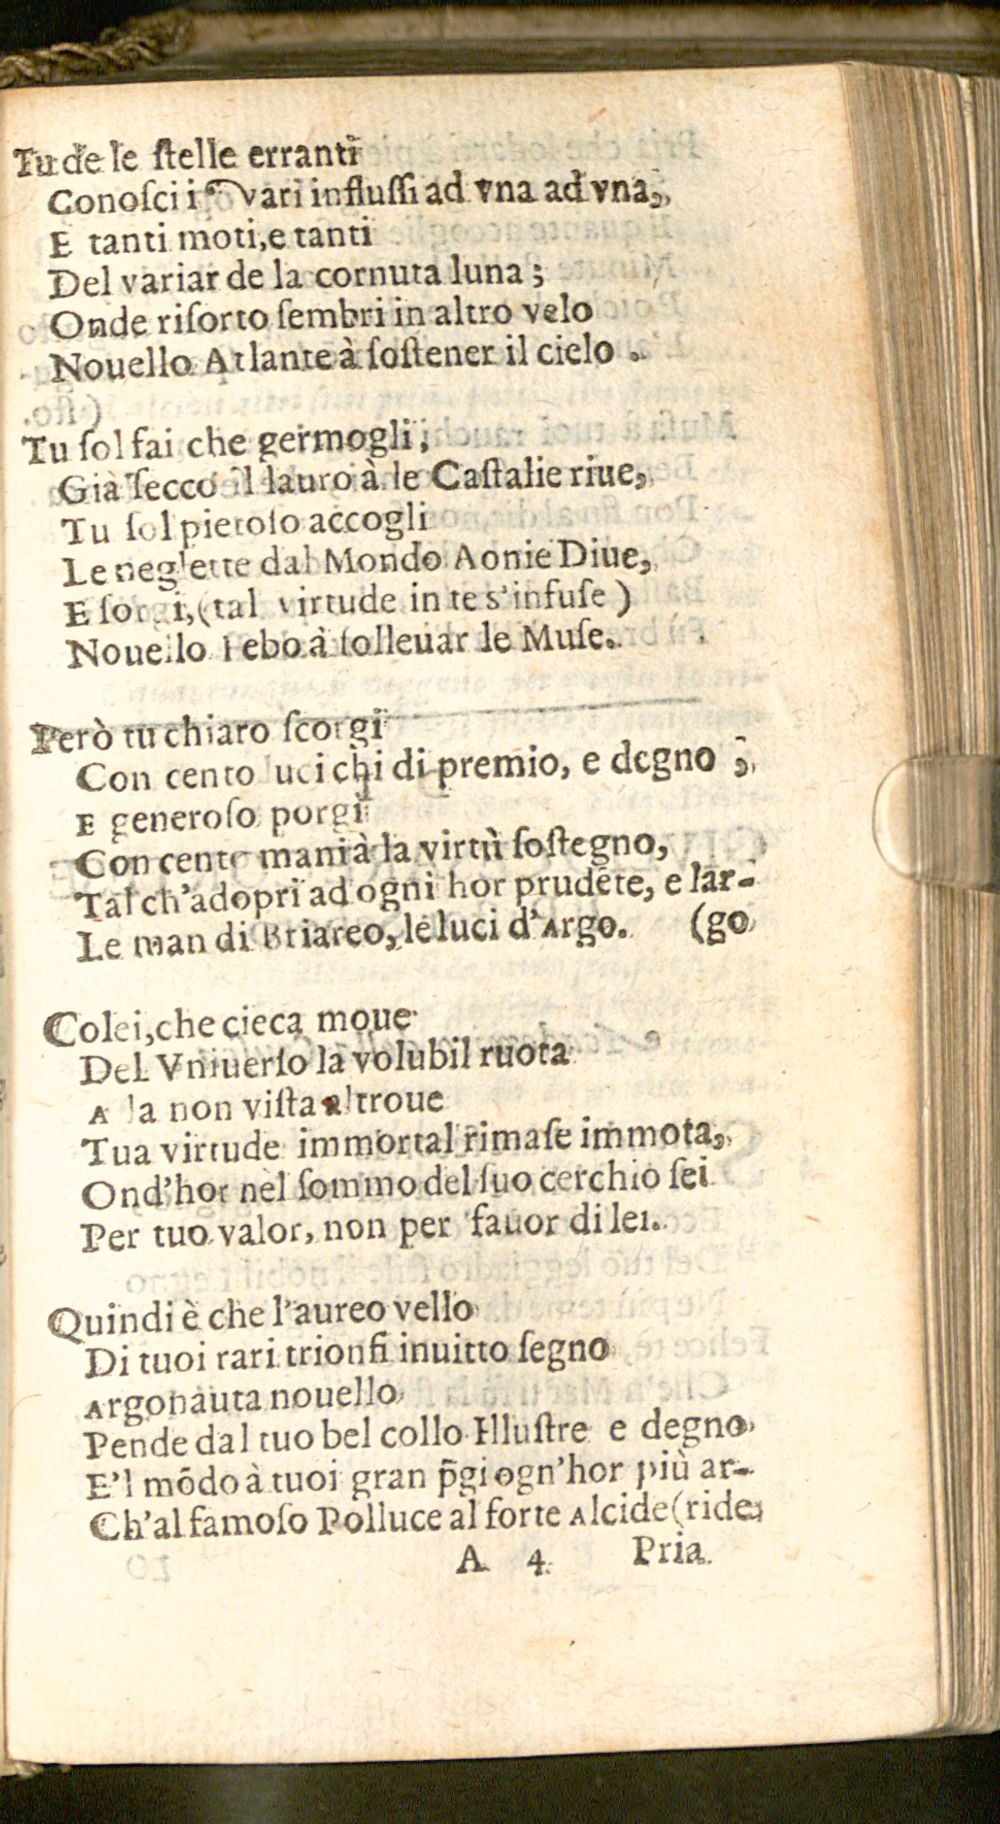 Tu de le ſtelle erranti
Conoſci i vari influſſi ad vna ad vna,
E tanti moti, e tanti
Del variar de la cornuta luna;
Onde riſorto ſembri in altro velo
Nouello Atlante à ſoſtener il cielo.
Tu ſol fai che germogli,
Già ſecco il lauro à le Caſtalie riue,
Tu ſol pietoſo accogli
Le neglette dal Mondo Aonie Diue,
E ſorgi, (tal virtude in te s'infuſe)
Nouello Febo à ſolleuar le Muſe.
Però tu chiaro ſcorgi
Con cento luci chi di premio, e degno;
E generoſo porgi
Con cento mani à la virtù ſoſtegno,
Tal ch'adopri ad ogni hor prudẽte, e lar-
Le man di Briareo, le luci d'Argo. (go
Colei, che cieca moue
Del Vniuerſo la volubil ruota
A la non viſta altroue
Tua virtude immortal rimaſe immota,
Ond'hor nel ſommo del ſuo cerchio ſei
Per tuo valor, non per fauor di lei.
Quindi è che l'aureo vello
Di tuoi rari trionfi inuitto ſegno
Argonauta nouello
Pende dal tuo bel collo Illuſtre e degno
E'l mõdo à tuoi gran p̃gi ogn'hor più ar-
Ch'al famoſo Polluce al forte Alcide (ride;
A 4 Pria